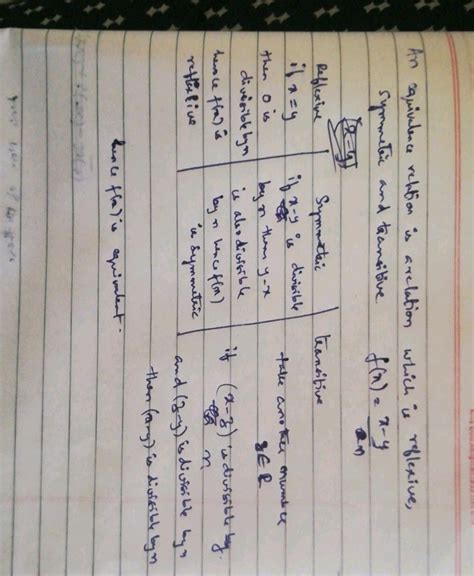 An equivalence relation is a relation which is reflexive,
symmetric and transitive f(x) = x-y
n
(x-y)
Reflexive
if x = y
then 0 is
divisible by n
hence f(n) is
reflexive
Symmetric
if x-y is divisible
by n then y-x
is also divisible
by n hence f(n)
is symmetric
transitive
take another number
z∈R
if (x-z) is divisible by
n
and (z-y) is divisible by n
then (x-y) is divisible by n
hence f(n) is equivalent.